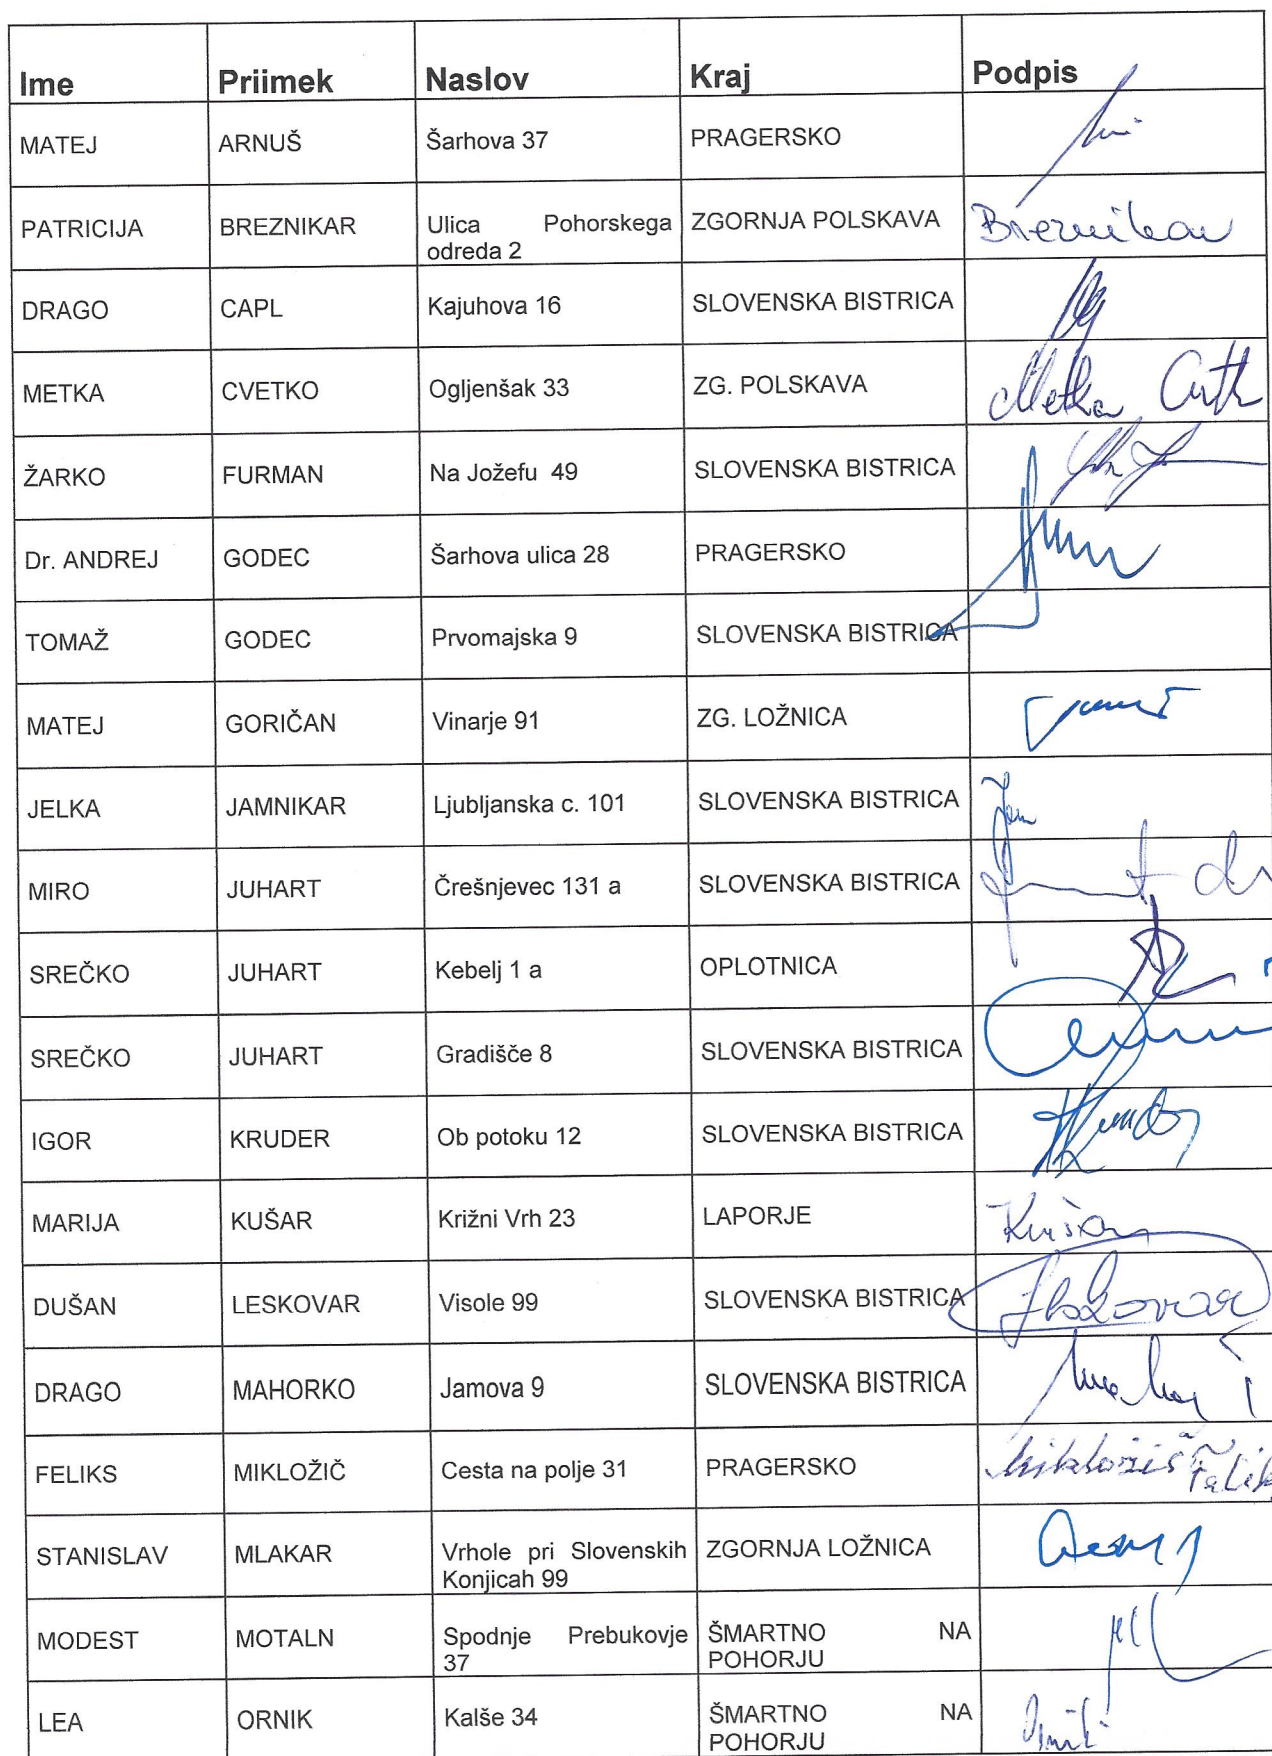 Ime Priimek Naslov Kraj Podpis
MATEJ ARNUŠ Šarhova 37 PRAGERSKO
PATRICIJA BREZNIKAR Ulica Pohorskega ZGORNJA POLSKAVA Breznikar
odreda 2
DRAGO CAPL Kajuhova 16 SLOVENSKA BISTRICA
METKA CVETKO Ogljenšak 33 ZG. POLSKAVA Metka
ŽARKO FURMAN Na Jožefu 49 SLOVENSKA BISTRICA
Dr. ANDREJ GODEC Šarhova ulica 28 PRAGERSKO
TOMAŽ GODEC Prvomajska 9 SLOVENSKA BISTRICA
MATEJ GORIČAN Vinarje 91 ZG. LOŽNICA
JELKA JAMNIKAR Ljubljanska c. 101 SLOVENSKA BISTRICA
MIRO JUHART Črešnjevec 131 a SLOVENSKA BISTRICA
SREČKO JUHART Kebelj 1 a OPLOTNICA
SREČKO JUHART Gradišče 8 SLOVENSKA BISTRICA
IGOR KRUDER Ob potoku 12 SLOVENSKA BISTRICA
MARIJA KUŠAR Križni Vrh 23 LAPORJE Kušar
DUŠAN LESKOVAR Visole 99 SLOVENSKA BISTRICA
DRAGO MAHORKO Jamova 9 SLOVENSKA BISTRICA
FELIKS MIKLOŽIČ Cesta na polje 31 PRAGERSKO
STANISLAV MLAKAR Vrhole pri Slovenskih ZGORNJA LOŽNICA
Konjicah 99
MODEST MOTALN Spodnje Prebukovje ŠMARTNO NA
37 POHORJU
LEA ORNIK Kalše 34 ŠMARTNO NA
POHORJU